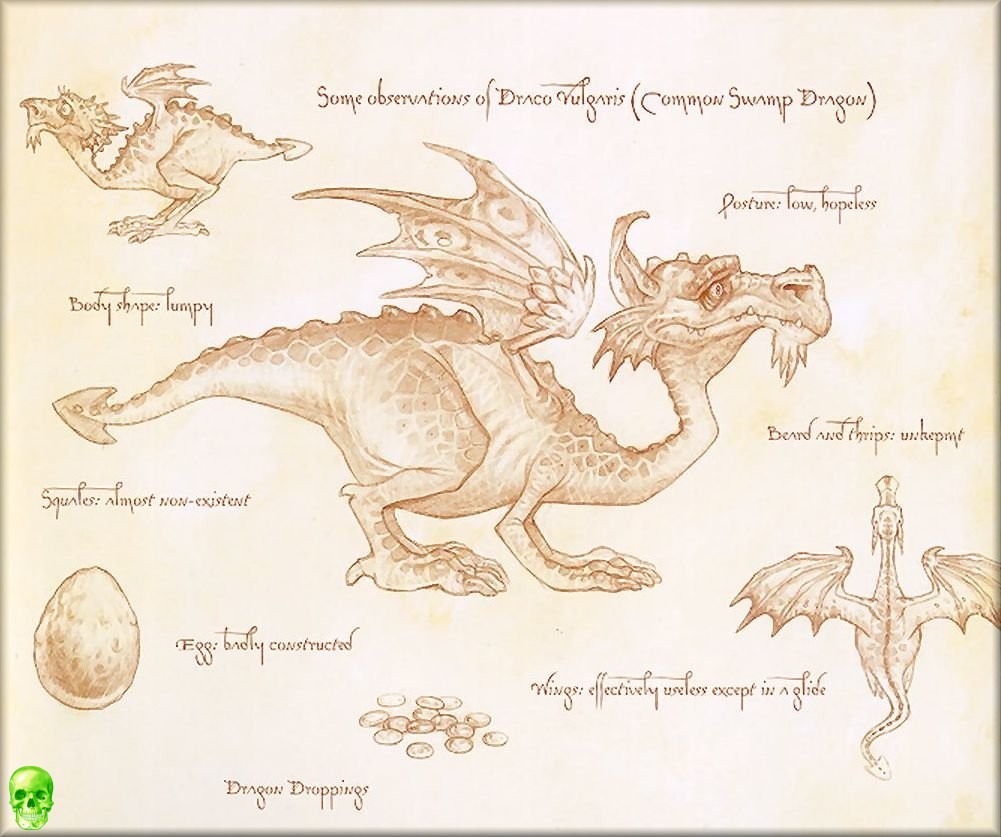 Some observations of Draco Vulgaris (Common Swamp Dragon)
Posture: low, hopeless
Body shape: lumpy
Beard and thrips: unkepmt
Squales: almost non-existent
Egg: badly constructed
Wings: effectively useless except in a glide
Dragon Droppings